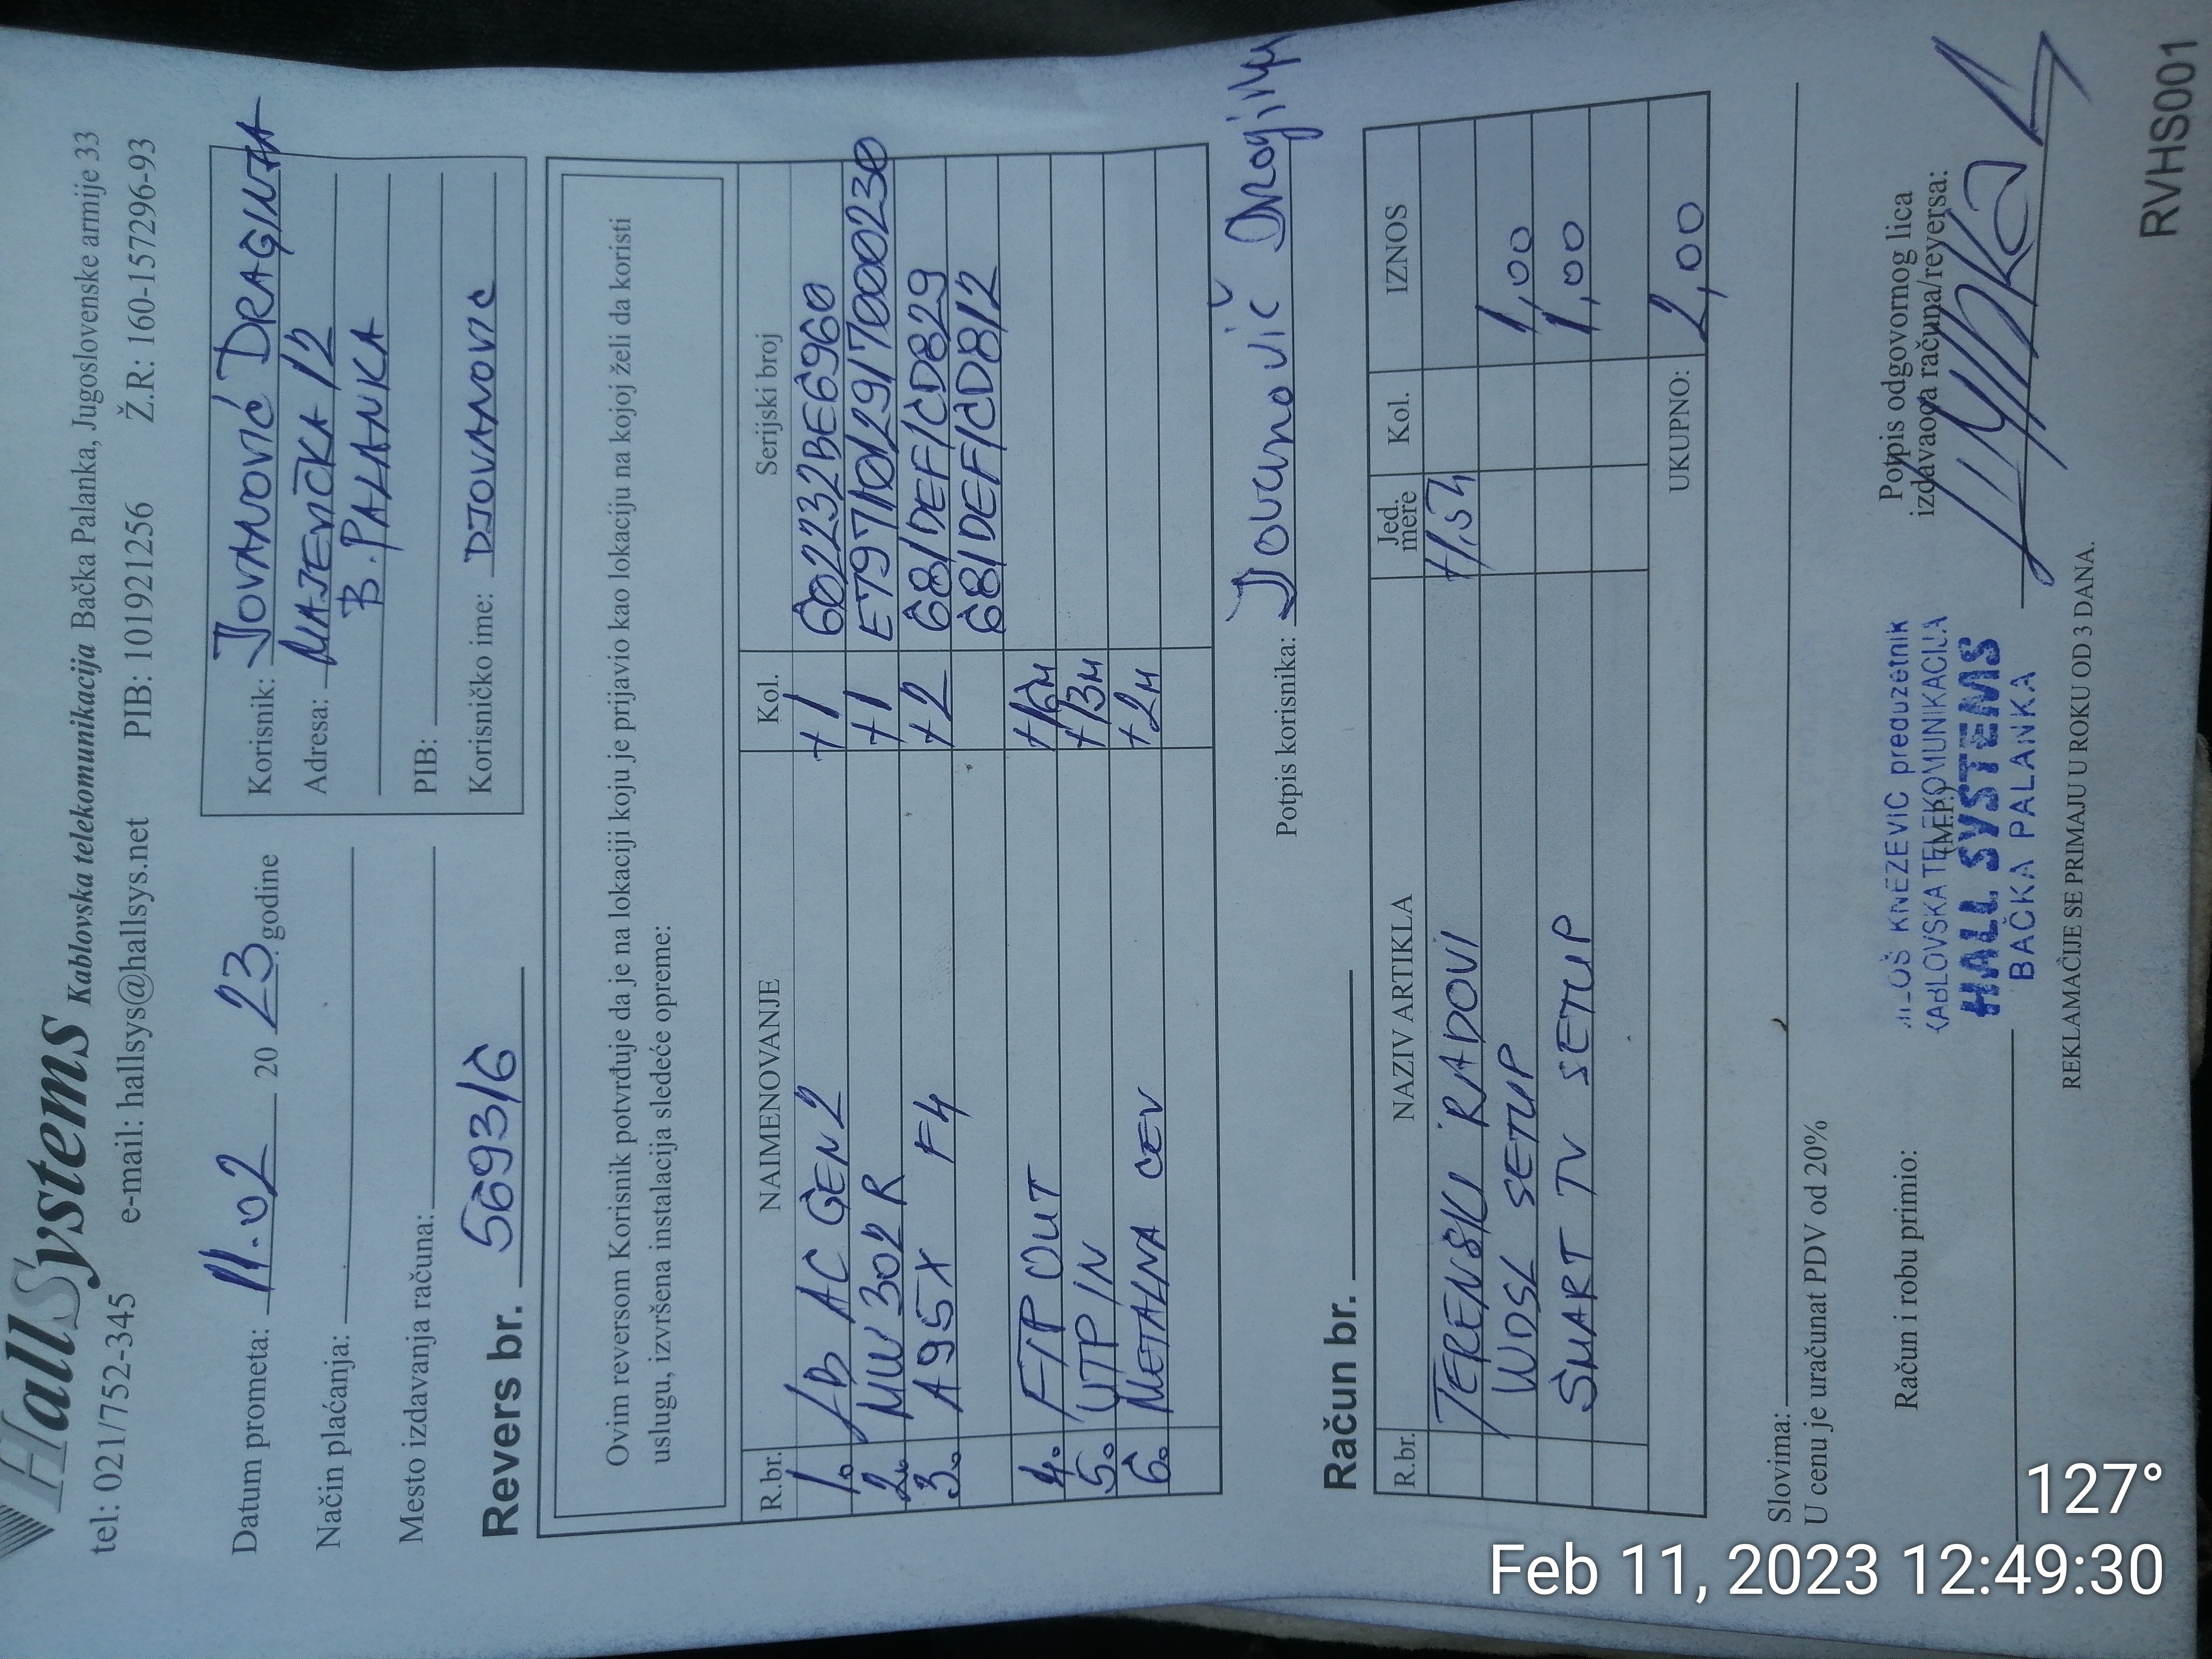 HallSystems Kablovska telekomunikacija Bačka Palanka, Jugoslovenske armije 33
tel: 021/752-345 e-mail: hallsys@hallsys.net PIB: 101921256 Ž.R: 160-157296-93
Datum prometa: 11.02 20 23. godine
Način plaćanja:
Mesto izdavanja računa:
Korisnik: JOVANOVIĆ DRAGINJA
Adresa: MAJEVIČKA 12
B. PALANKA
PIB:
Korisničko ime: DJOVANOVIC
Revers br. 569316
Ovim reversom Korisnik potvrđuje da je na lokaciji koju je prijavio kao lokaciju na kojoj želi da koristi
uslugu, izvršena instalacija sledeće opreme:
R.br. NAIMENOVANJE Kol. Serijski broj
1. LB AC GEN2 +1 602232BE6960
2. MW302R +1 E7971012917000230
3. A95X F4 +2 681DEF1CD829
681DEF1CD812
4. FTP OUT +16M
5. UTP IN +13M
6. METALNA CEV +2M
Potpis korisnika: Jovanović Draginja
Račun br.
R.br. NAZIV ARTIKLA Jed. mere Kol. IZNOS
TERENSKI RADOVI +1,5h
WDSL SETUP 1,00
SMART TV SETUP 1,00
UKUPNO: 2,00
Slovima:
U cenu je uračunat PDV od 20%
Račun i robu primio:
(M.P.)
Potpis odgovornog lica
izdavaoca računa/reversa:
MILOŠ KNEZEVIC preduzetnik
KABLOVSKA TELEKOMUNIKACIJA
HALL SYSTEMS
BAČKA PALANKA
REKLAMACIJE SE PRIMAJU U ROKU OD 3 DANA.
RVHS001
127°
Feb 11, 2023 12:49:30